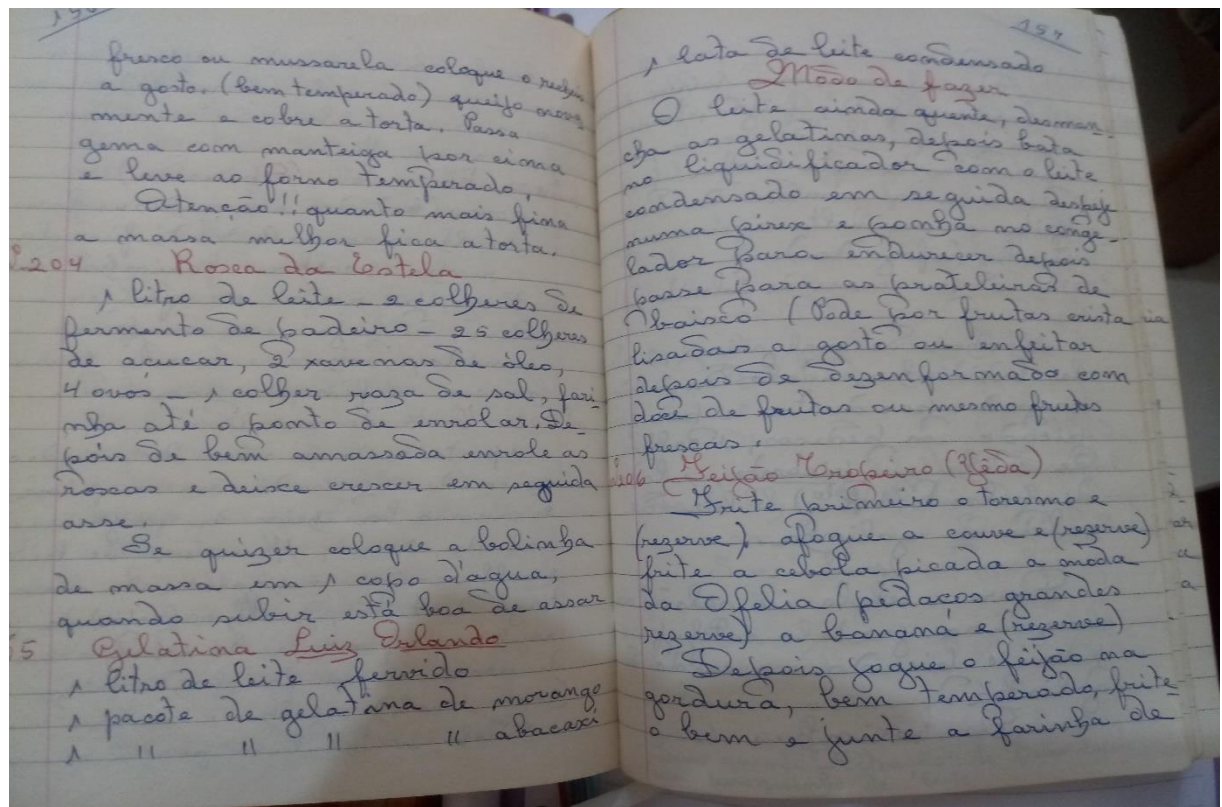 fresco ou mussarela coloque o
a gosto. (bem temperado) queijo nova
mente e cobre a torta. Passa
gema com manteiga por cima
e leve ao forno temperado.
Atenção!! quanto mais fina
a massa melhor fica a torta.
204 Rosca da Estela
1 litro de leite - 2 colheres de
fermento de padeiro - 25 colheres
de açucar, 2 xavenas de óleo,
4 ovos - 1 colher raza de sal, fari-
nha até o ponto de enrolar. De-
pois de bem amassada enrole as
roscas e deixe crescer em seguida
asse.
Se quizer coloque a bolinha
de massa em 1 copo d'agua,
quando subir está boa de assar
5 Gelatina Luiz Orlando
1 litro de leite fervido
1 pacote de gelatina de morango
1 " " " " abacaxi
157
1 lata de leite condensado
Modo de fazer
O leite ainda quente, desman-
cha as gelatinas, depois bata
no liquidificador com o leite
condensado em seguida despeje
numa pirex e ponha no conge-
lador para endurecer depois
passe para as prateleiras de
baixo (Pode por frutas crista
lisadas a gosto ou enfeitar
depois de dezenformado com
doce de frutas ou mesmo frutas
frescas.
206 Feijão Tropeiro (Ylêda)
Frite primeiro o toresmo e
(rezerve). afogue a couve e (rezerve)
frite a cebola picada a moda
da Ofelia (pedaços grandes
rezerve) a banana e (rezerve)
Depois jogue o feijão na
gordura, bem temperado, frite-
o bem e junte a farinha de